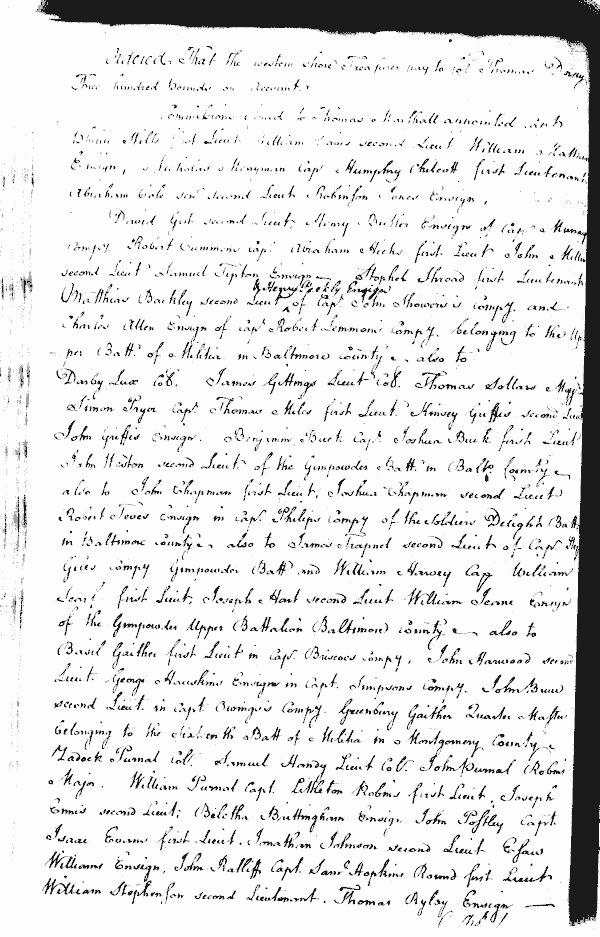 Ordered That the western Shore Treasurer pay to Col. Thomas Dorsey
Three hundred Pounds on Account.
Commissions issued to Thomas Marshall appointed Capt.
Mills first Lieut. William second Lieut William
Ensign, Nicholas Merryman Capt Humphry Chilcott first Lieutenant
Abraham Cole senr second Lieut Robinson Jones Ensign,
David Gist second Lieut, Henry Butler Ensign of Capt Murray
Compy. Robert Cummons Capt Abraham Hicks first Lieut John Miller
second Lieut Samuel Tipton Ensign Stophel Shroad first Lieutenant
& Henry Ensign
Matthias Backley second Lieut of Capt. John Showers's Compy. and
Charles Allen Ensign of Capt Robert Lemmon's Compy. belonging to the Up
per Batt. of Militia in Baltimore County also to
Darby Lux Col. James Gittings Lieut Col. Thomas Sollars Major
Simon Fryor Capt. Thomas Miles first Lieut. Kinsey Griffis second Lieut
John Griffis Ensign. Benjamin Buck Capt. Joshua Buck first Lieut
John Weston second Lieut of the Gunpowder Batt. in Balt. County
also to John Chapman first Lieut. Joshua Chapman second Lieut
Robert Teves Ensign in Capt. Philips Compy of the Soldiers Delight Batt
in Baltimore County also to James Trapnel second Lieut of Capt
Giles Compy Gunpowder Batt and William Harvey Capt William
Searl first Lieut. Joseph Hart second Lieut William Jeane Ensign
of the Gunpowder Upper Battalion Baltimore County also to
Basil Gaither first Lieut in Capt Briscoes Compy. John Harwood second
Lieut. George Hawskins Ensign in Capt. Simpsons Compy. John
second Lieut. in Capt Compy. Greenbury Gaither Quarter Master
belonging to the Batt of Militia in Montgomery County
Zadock Purnal Col. Samuel Handy Lieut Col. John Purnal Robins
Major. William Purnal Capt. Littleton Robins first Lieut. Joseph
Ennis second Lieut: Beletha Brittingham Ensign John Postley Capt.
Isaac Evans first Lieut. Jonathan Johnson second Lieut Esau
Williams Ensign, John Ratliff Capt. Saml Hopkins Round first Lieut
William Stephenson second Lieutenant. Thomas Ryley Ensign